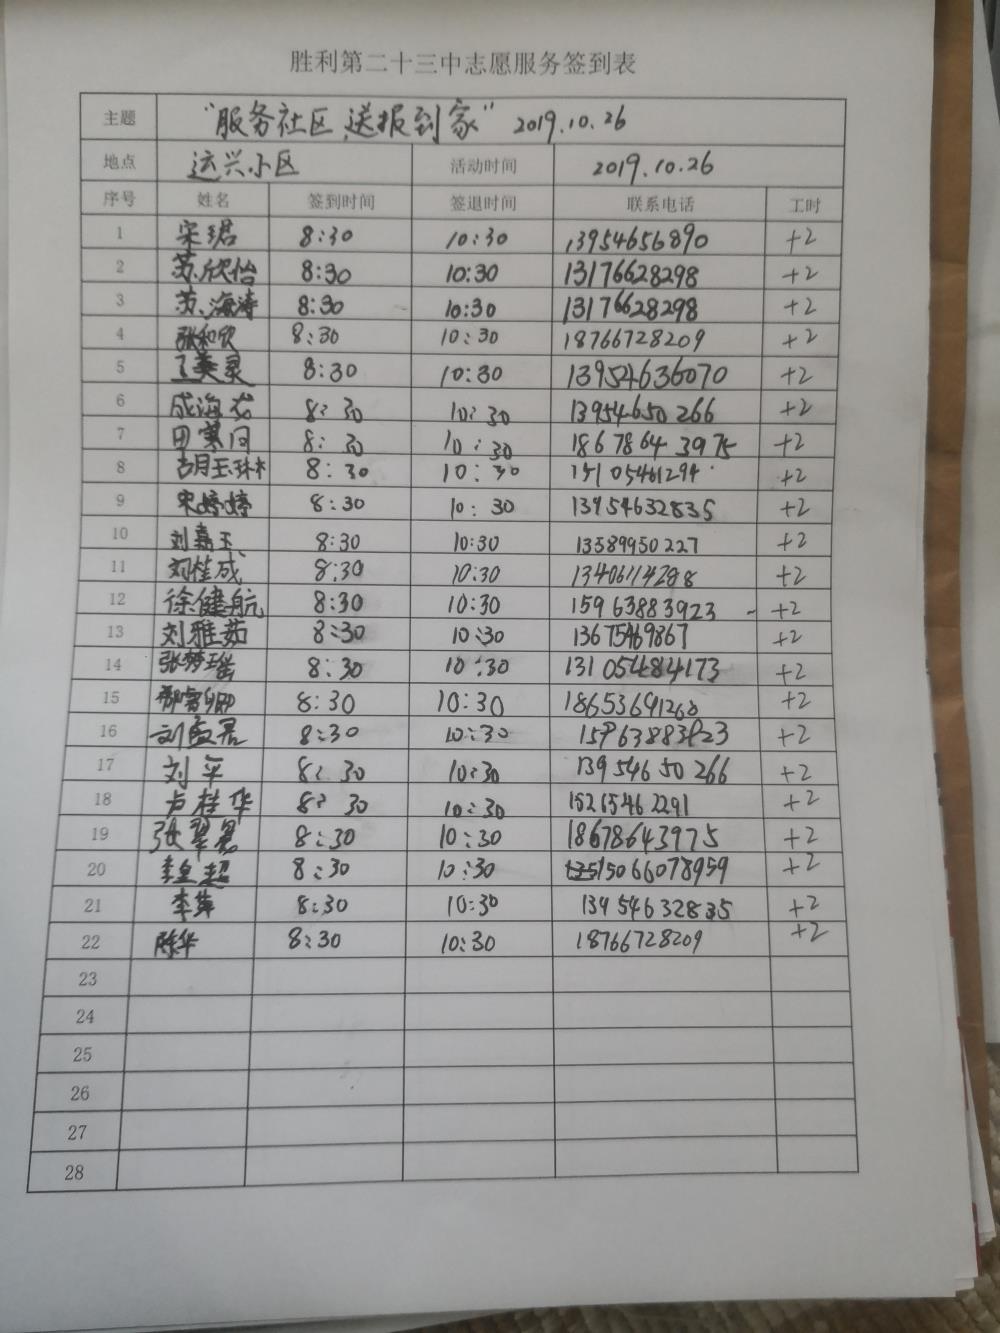 胜利第二十三中志愿服务签到表
主题 “服务社区,送报到家” 2019.10.26
地点 运兴小区 活动时间 2019.10.26
序号 姓名 签到时间 签退时间 联系电话 工时
1 宋珺 8:30 10:30 13954656890 +2
2 苏欣怡 8:30 10:30 13176628298 +2
3 苏海涛 8:30 10:30 13176628298 +2
4 张和欣 8:30 10:30 18766728209 +2
5 王英灵 8:30 10:30 13954636070 +2
6 成海龙 8:30 10:30 13954650266 +2
7 田寒间 8:30 10:30 18678643975 +2
8 胡玉琳 8:30 10:30 15105461294 +2
9 宋婷婷 8:30 10:30 13954632835 +2
10 刘嘉玉 8:30 10:30 13589950227 +2
11 刘桂成 8:30 10:30 13406114288 +2
12 徐健航 8:30 10:30 15963883923 +2
13 刘雅茹 8:30 10:30 13675469867 +2
14 张梦瑶 8:30 10:30 13105484173 +2
15 8:30 10:30 18653691268 +2
16 刘孟君 8:30 10:30 15963883923 +2
17 刘平 8:30 10:30 13954650266 +2
18 卢桂华 8:30 10:30 15265462291 +2
19 张翠君 8:30 10:30 18678643975 +2
20 8:30 10:30 15066078959 +2
21 李萍 8:30 10:30 13954632835 +2
22 陈华 8:30 10:30 18766728209 +2
23
24
25
26
27
28